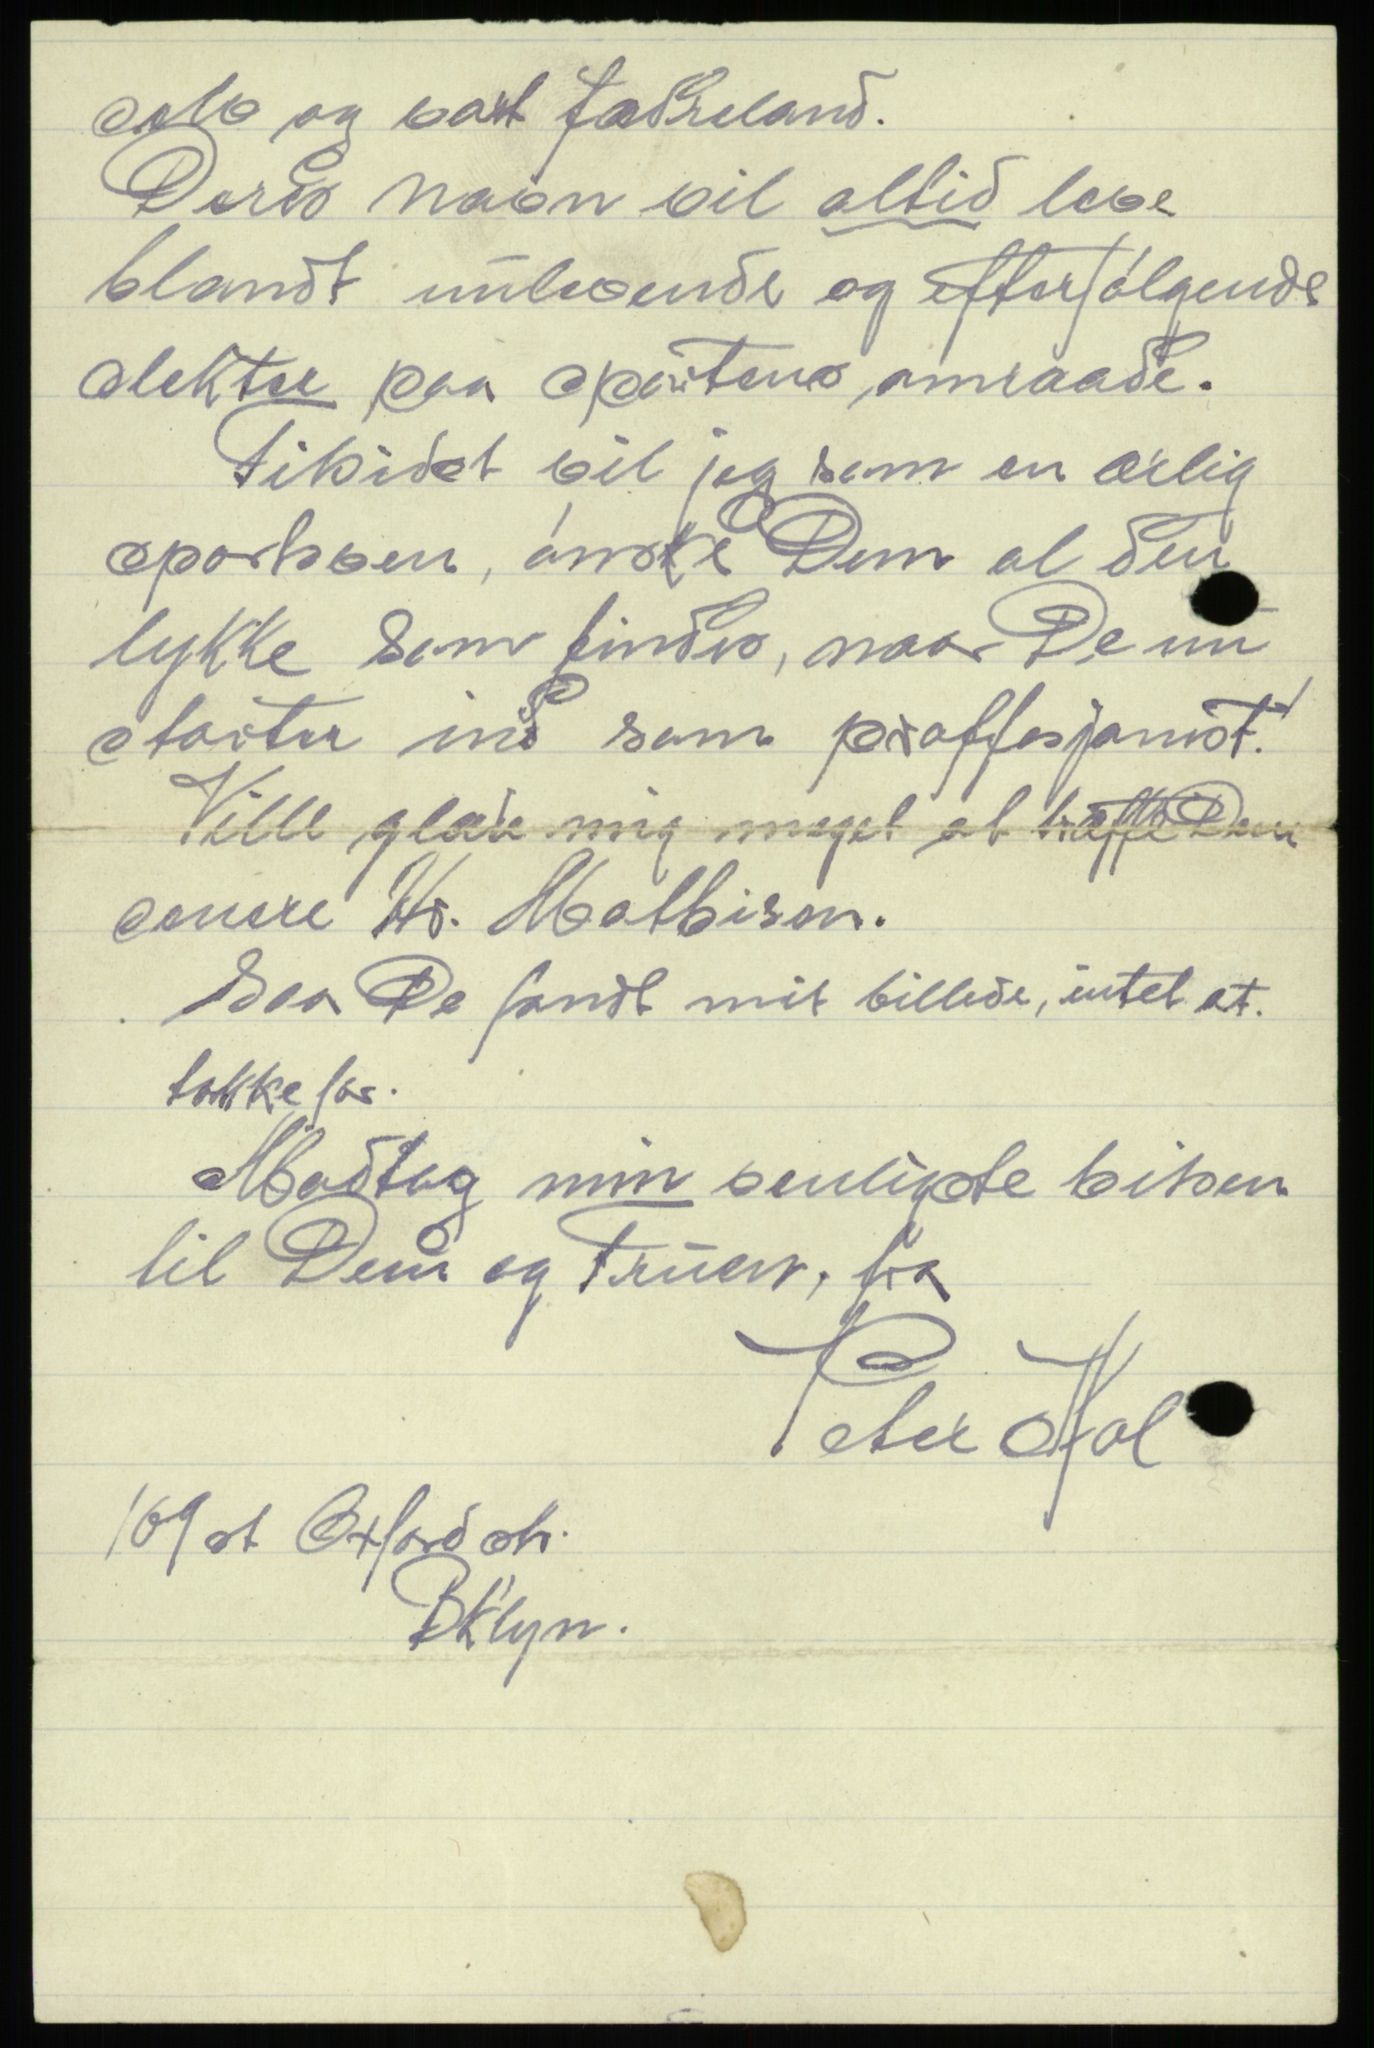 selv og vort fædreland.
Deres navn vil altid leve
blandt nulevende og efterfølgende
slekter paa sportens omraade.
Tilsidst vil jeg som en ærlig
sportsven, ønske Dem al den
lykke som findes, naar De nu
starter ind som proffesjonist!
Ville glæde mig meget at træffe Dem
senere Hr. Mathisen.
Saa De fandt mit billede, intet at
takke for.
Modtag min venligste hilsen
til Dem og Fruen, fra
Peter Hol
169 st Oxford str.
Bklyn.